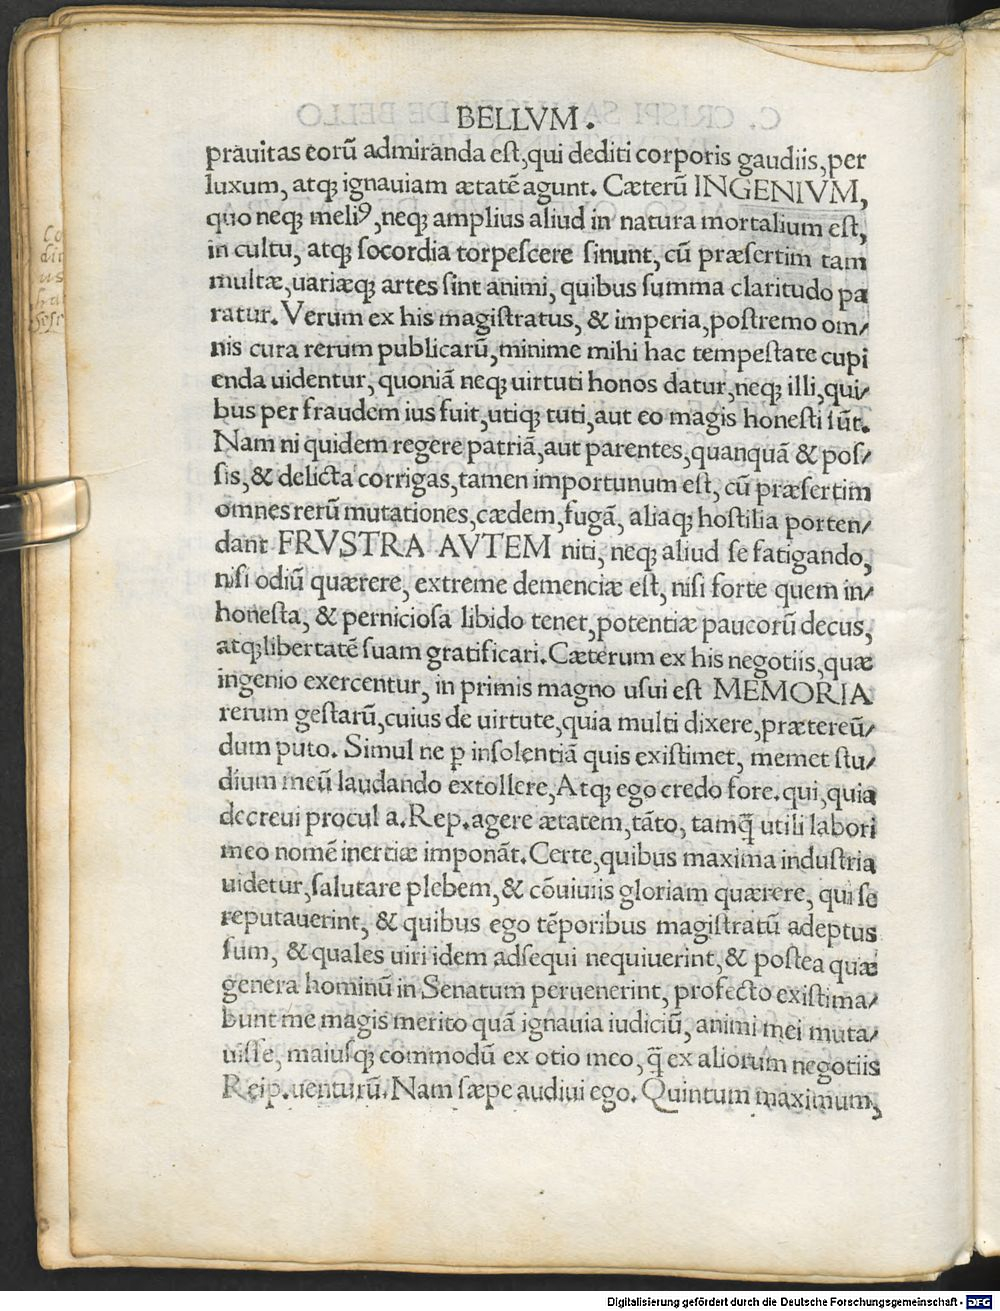 BELLVM.
prauitas eorū admiranda est, qui dediti corporis gaudiis, per
luxum, atq; ignauiam ætatē agunt. Cæterū INGENIVM,
quo neq; meliꝰ, neq; amplius aliud in natura mortalium est,
in cultu, atq; socordia torpescere sinunt, cū præsertim tam
multæ, uariæq; artes sint animi, quibus summa claritudo pa
ratur. Verum ex his magistratus, & imperia, postremo om/
nis cura rerum publicarū, minime mihi hac tempestate cupi
enda uidentur, quoniā neq; uirtuti honos datur, neq; illi, qui/
bus per fraudem ius fuit, utiq; tuti, aut eo magis honesti sūt.
Nam ni quidem regere patriā, aut parentes, quanquā & pos/
sis, & delicta corrigas, tamen importunum est, cū præsertim
omnes rerū mutationes, cædem, fugā, aliaq; hostilia porten/
dant FRVSTRA AVTEM niti, neq; aliud se fatigando,
nisi odiū quærere, extreme demenciæ est, nisi forte quem in/
honesta, & perniciosa libido tenet, potentiæ paucorū decus,
atq; libertatē suam gratificari. Cæterum ex his negotiis, quæ
ingenio exercentur, in primis magno usui est MEMORIA
rerum gestarū, cuius de uirtute, quia multi dixere, prætereū/
dum puto. Simul ne ꝑ insolentiā quis existimet, memet stu/
dium meū laudando extollere, Atq; ego credo fore. qui, quia
decreui procul a. Rep. agere ætatem, tāto, tamq̄ utili labori
meo nomē inertiæ imponāt. Certe, quibus maxima industria
uidetur, salutare plebem, & cōuiuiis gloriam quærere, qui se
reputauerint, & quibus ego tēporibus magistratū adeptus
sum, & quales uiri idem adsequi nequiuerint, & postea quæ
genera hominū in Senatum peruenerint, profecto existima/
bunt me magis merito quā ignauia iudiciū, animi mei muta/
uisse, maiusq; commodū ex otio meo, q̄ ex aliorum negotiis
Reip. uenturū. Nam sæpe audiui ego. Quintum maximum,
Digitalisierung gefördert durch die Deutsche Forschungsgemeinschaft - DFG